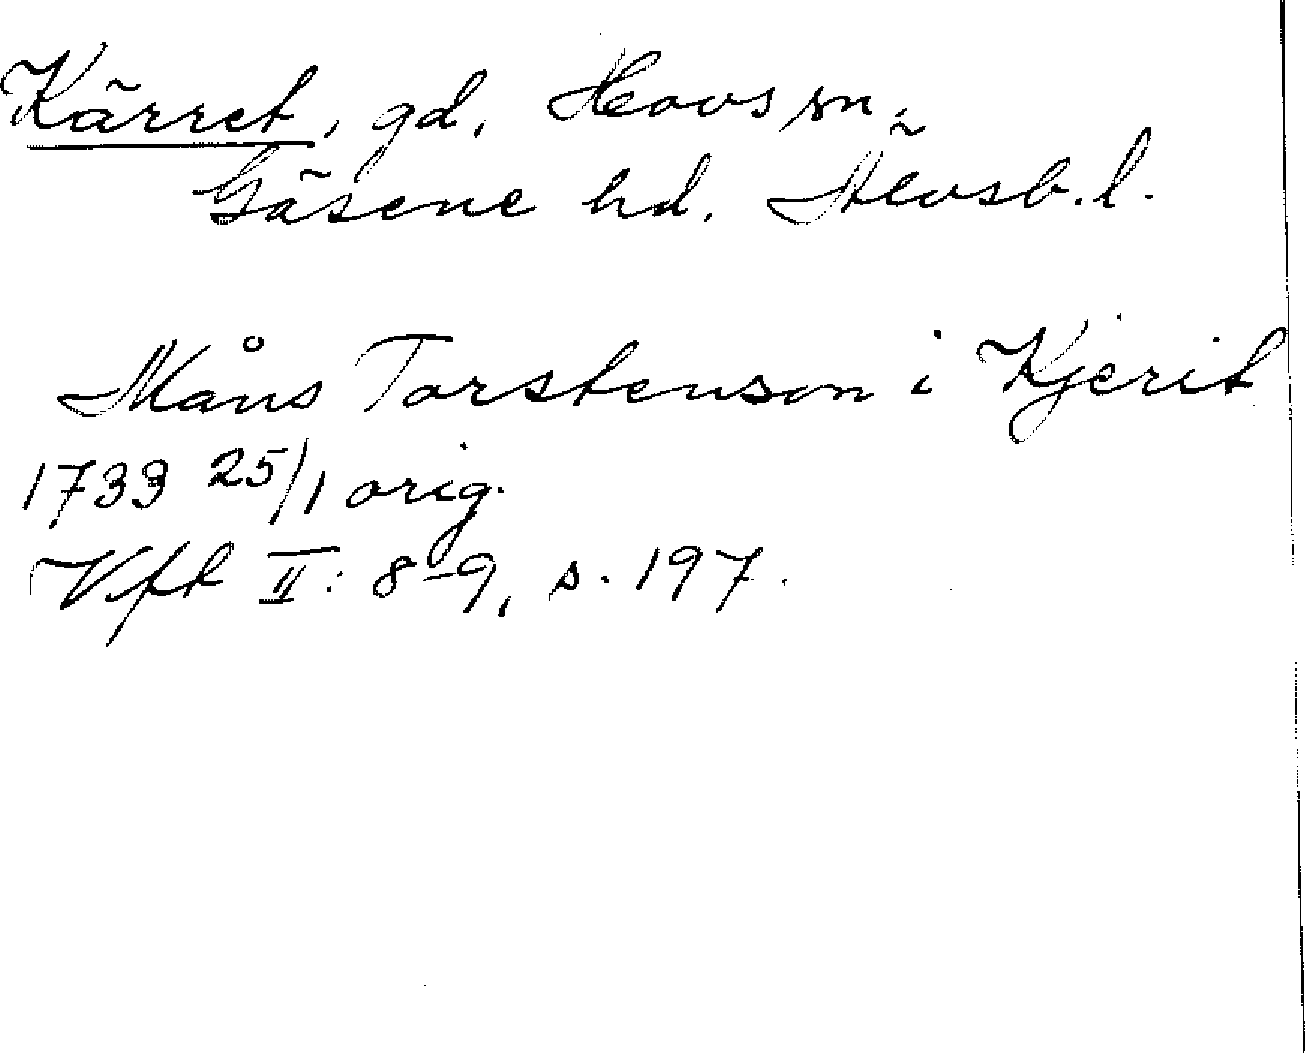 Kärret, gd, Hovs sn,
Gäsene hd. Älvsb. l.
Måns Torstenson i Kjerit
1733 25/1 orig.
Vfl II: 8-9, s. 197.